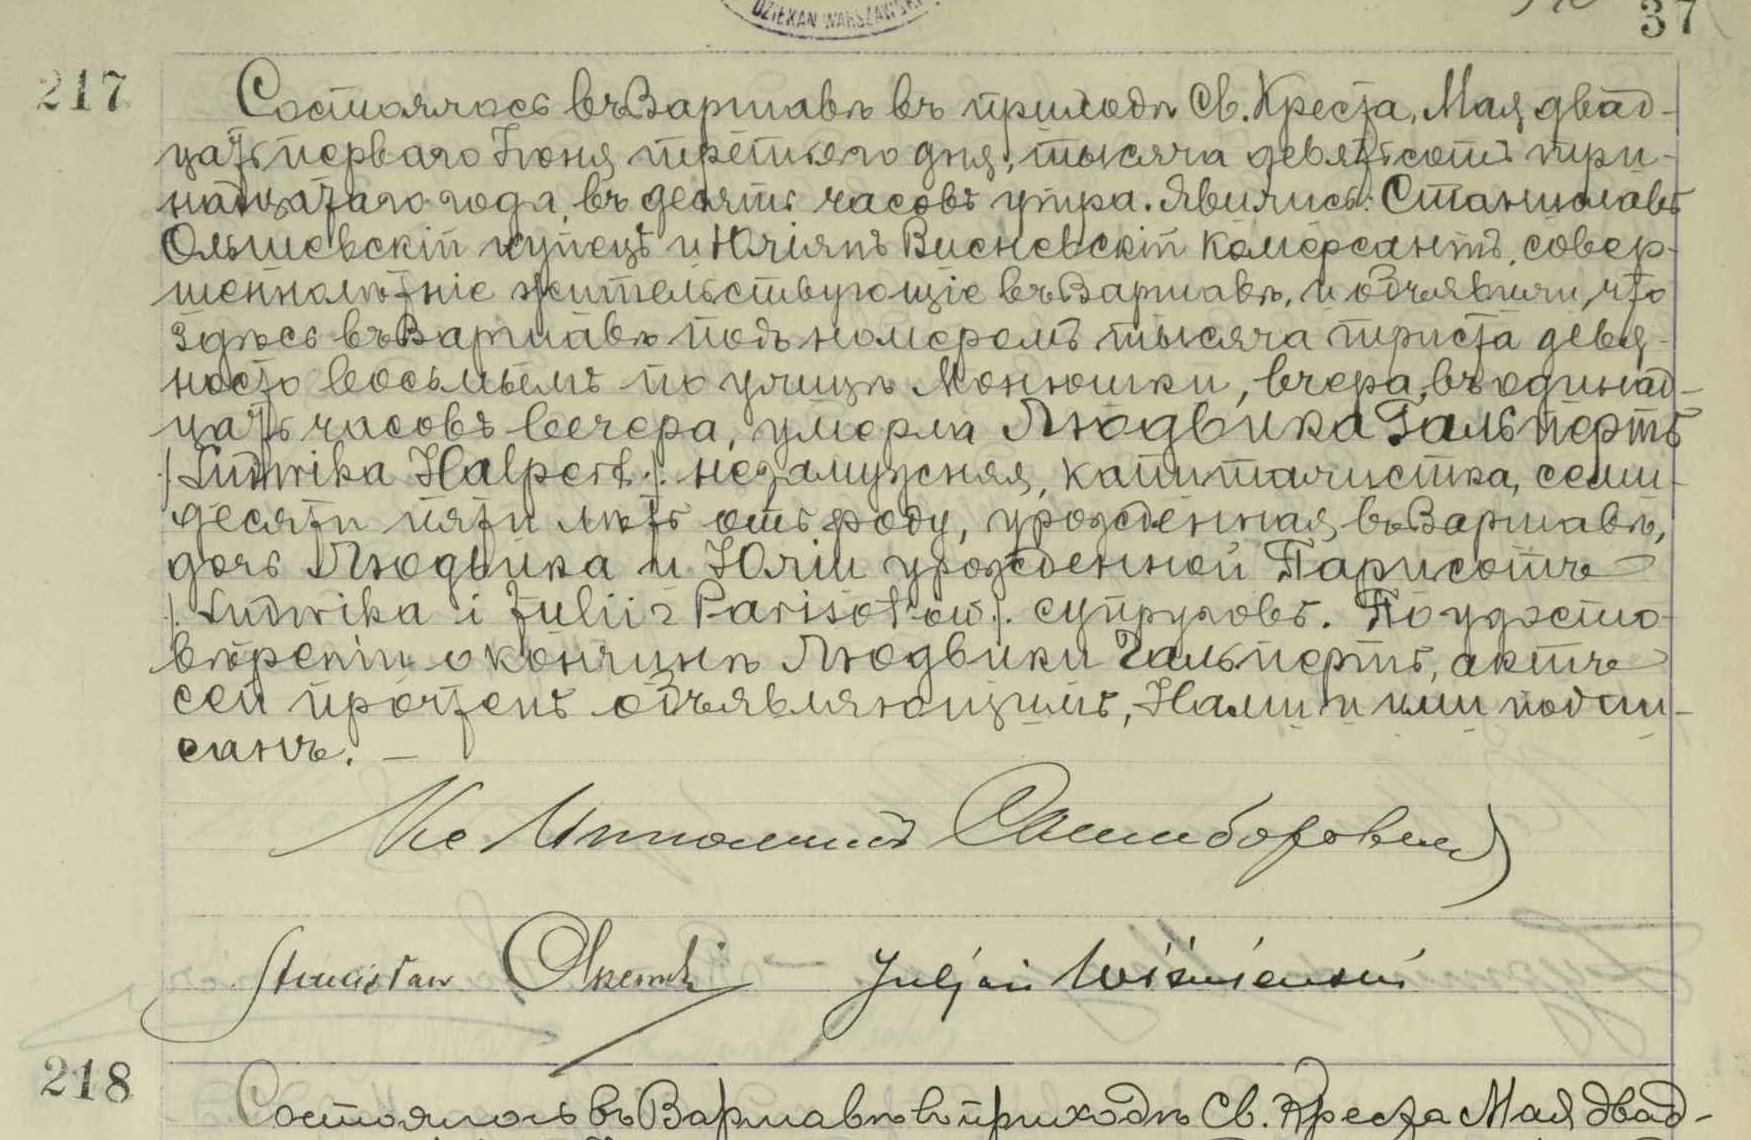 DZIEKAN WARSZAWSKI
37
217
Состоялось въ Варшавѣ въ приходѣ Св. Креста, Мая двад-
цать перваго Іюня третьяго дня, тысяча девятьсотъ три-
надцатаго года, въ десять часовъ утра. Явились: Станиславъ
Ольшевскій купецъ и Юліянъ Висневскій комерсантъ, совер-
шеннолѣтніе жительствующіе въ Варшавѣ, и объявили, что
здѣсь въ Варшавѣ подъ номеромъ тысяча триста девя-
носто восьмымъ по улицѣ Монюшки, вчера, въ одинад-
цать часовъ вечера, умерла Людвика Гальпертъ
/:Ludwika Halpert:/ незамужняя, капиталистка, семи-
десяти пяти лѣтъ отъ роду, урожденная въ Варшавѣ,
дочь Людвика и Юліи урожденной Парисотъ
/:Ludwika i Julii z Parisotów:/ супруговъ. По удосто-
вѣреніи о кончинѣ Людвики Гальпертъ, актъ
сей прочтенъ объявляющимъ, Нами и ими подпи-
санъ. —
Кс Ипполитъ Самборовичъ
Stanisław Olszewski Juljan Wiśniewski
218
Состоялось въ Варшавѣ въ приходѣ Св. Креста Мая двад-